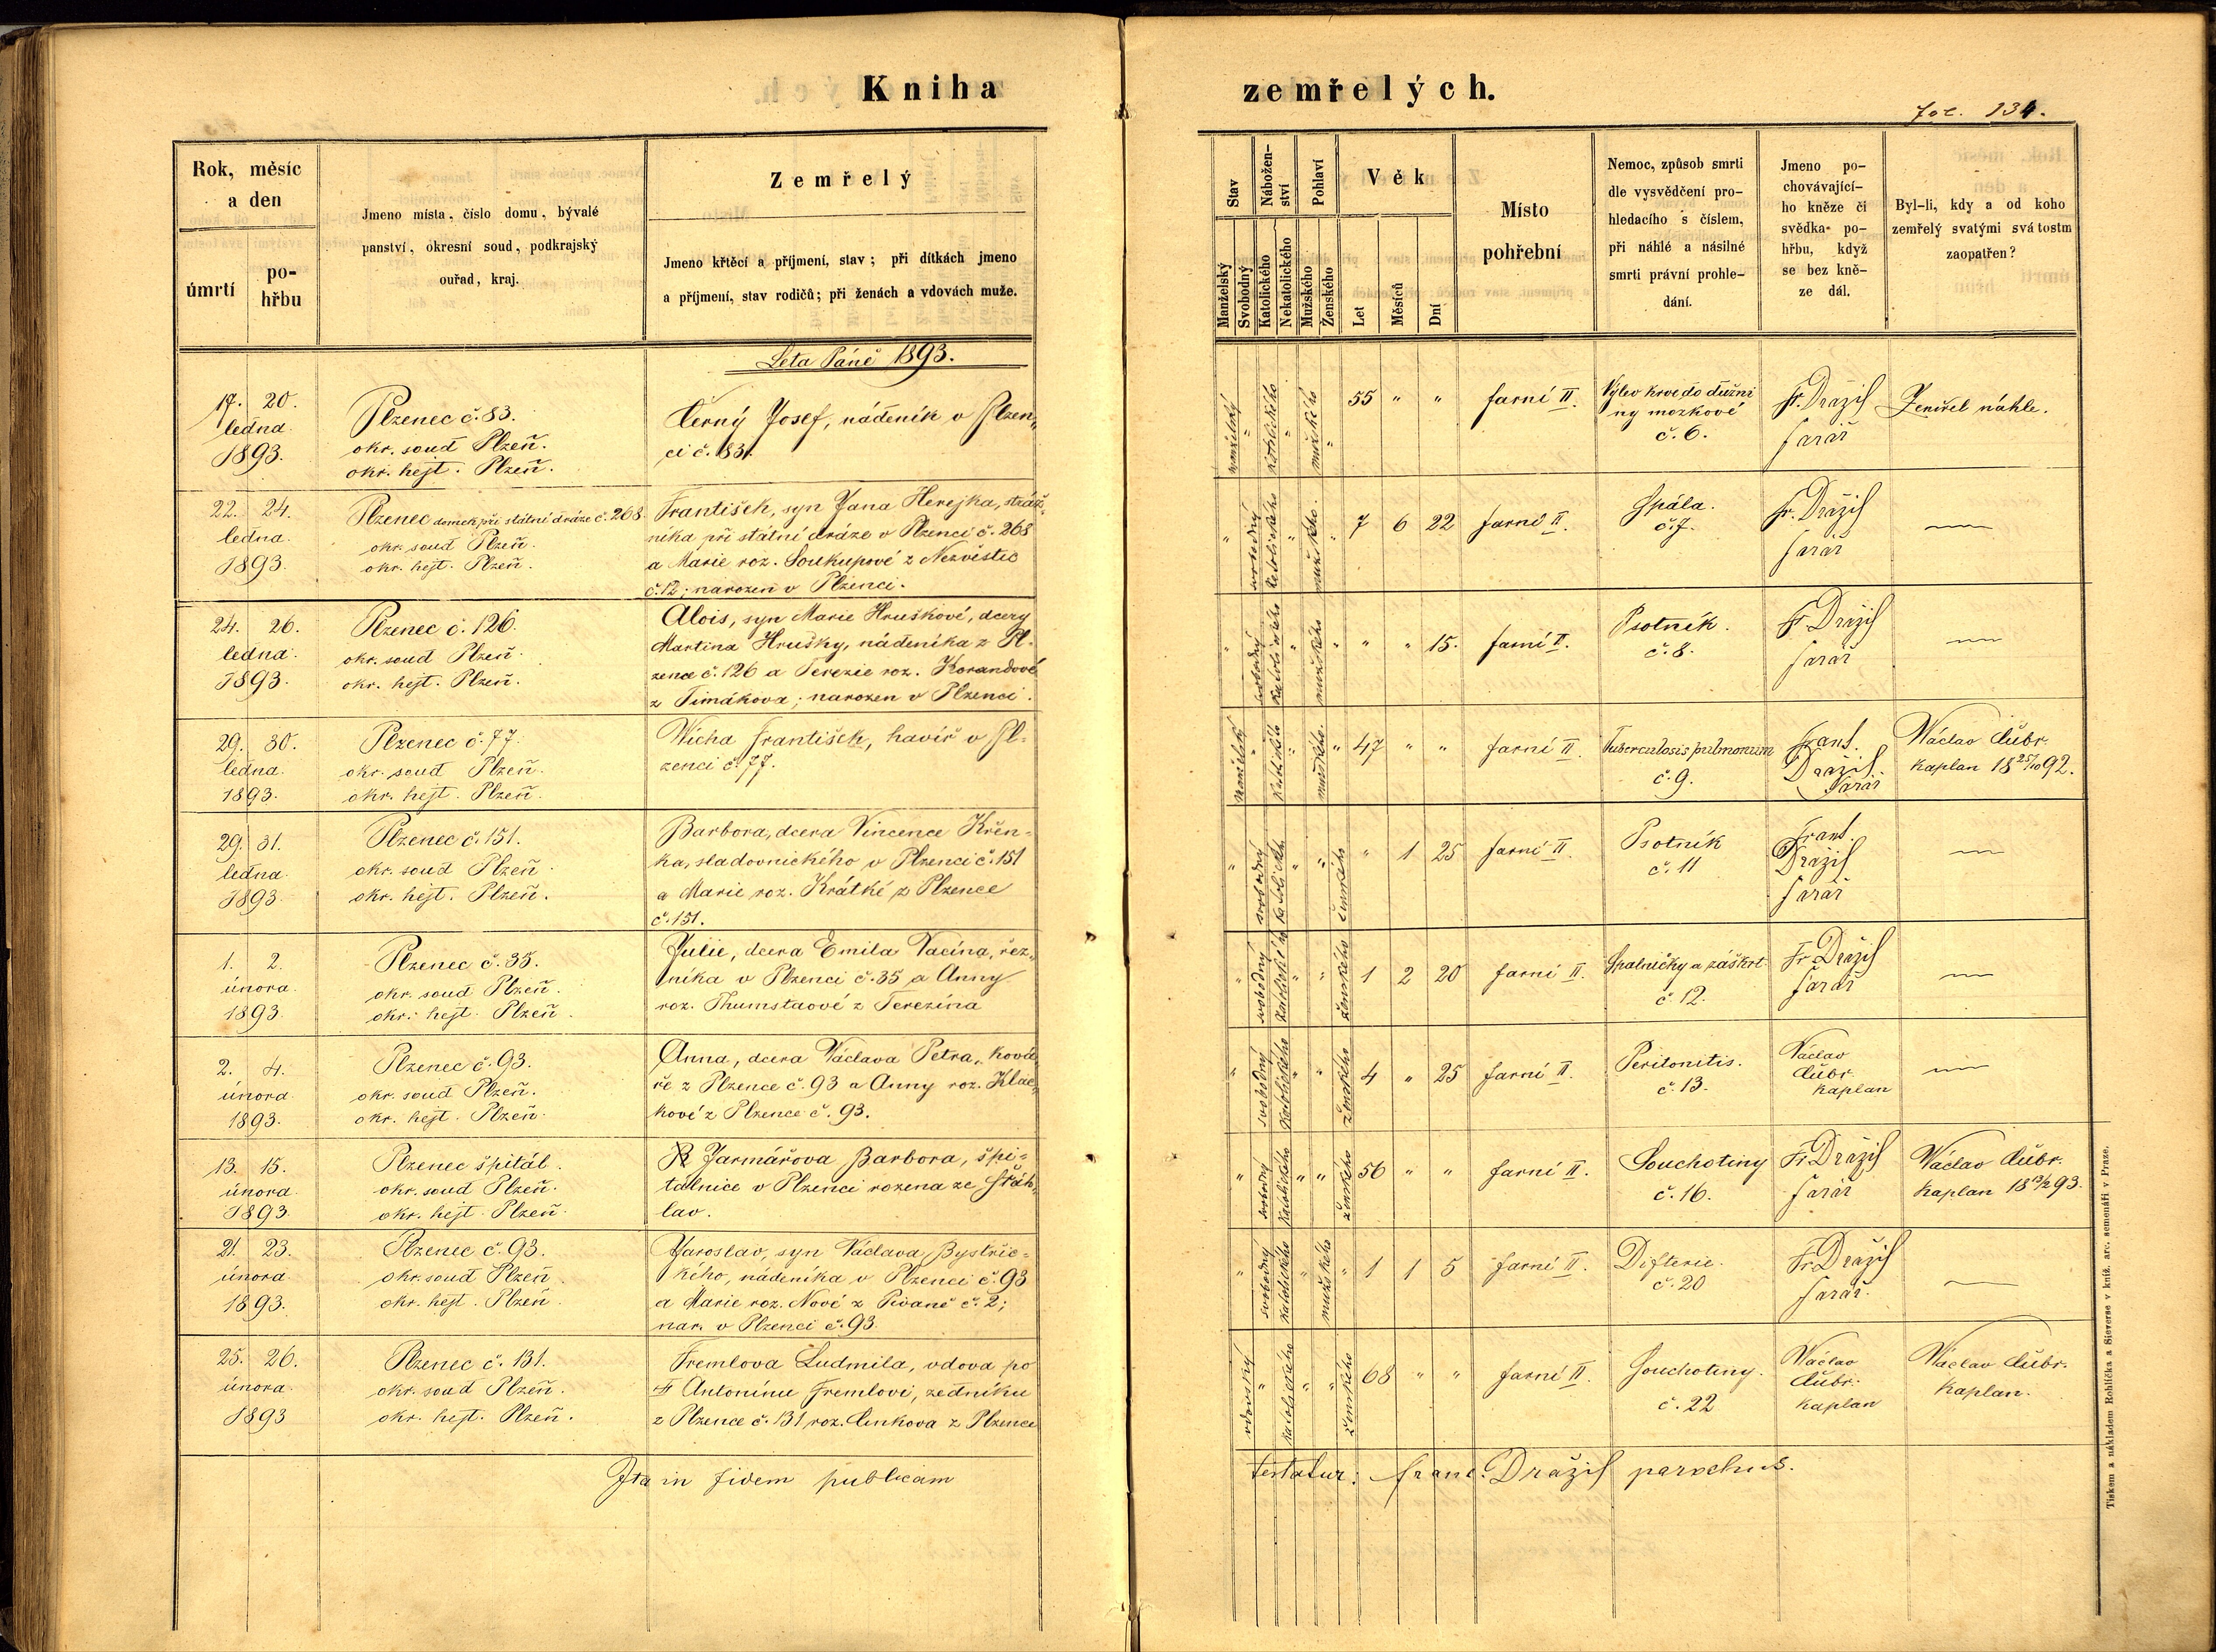 Kniha zemřelých.
Fol. 134.
Rok, měsíc a den
úmrtí
po-
hřbu
Jmeno místa, číslo domu, bývalé
panství, okresní soud, podkrajský
ouřad, kraj.
Zemřelý
Jmeno křtěcí a příjmení, stav; při dítkách jmeno
a příjmení, stav rodičů; při ženách a vdovách muže.
Stav
Manželský
Svobodný
Nábožen-
ství
Katolického
Nekatolického
Pohlaví
Mužského
Ženského
Věk
Let
Měsíců
Dní
Místo
pohřební
Nemoc, způsob smrti
dle vysvědčení pro-
hledacího s číslem,
při náhlé a násilné
smrti právní prohle-
dání.
Jmeno po-
chovávající-
ho kněze či
svědka po-
hřbu, když
se bez kně-
ze dál.
Byl-li, kdy a od koho
zemřelý svatými svátostmi
zaopatřen?
Leta Páně 1893.
17. 20.
ledna
1893.
Plzenec č. 83.
okr. soud Plzeň.
okr. hejt. Plzeň.
Černý Josef, nádeník v Plzen„
ci č. 83.
manželský
katolického
mužského
55 " "
farní II.
Výlev krve do dužni
ny mozkové
č. 6.
Fr. Dražil
farář
Zemřel náhle.
22. 24.
ledna.
1893.
Plzenec domek při státní dráze č. 268
okr. soud Plzeň.
okr. hejt. Plzeň.
František, syn Jana Herejka, stráž„
níka při státní dráze v Plzenci č. 268
a Marie roz. Soukupové z Nezvěstic
č. 12; narozen v Plzenci.
svobodný
katolického
mužského.
7 6 22
farní II.
Spála.
č. 7.
Fr. Dražil
farář
24. 26.
ledna.
1893.
Plzenec č. 126.
okr. soud Plzeň.
okr. hejt. Plzeň.
Alois, syn Marie Hruškové, dcery
Martina Hrušky, nádeníka z Pl-
zence č. 126 a Terezie roz. Korandové
z Timákova; narozen v Plzenci.
svobodný
katolického
mužského
" " 15.
farní II.
Psotník.
č. 8.
Fr. Dražil
farář
29. 30.
ledna.
1893.
Plzenec č. 77.
okr. soud Plzeň.
okr. hejt. Plzeň.
Wícha František, havíř v Pl-
zenci č. 77.
manželský
katolického
mužského.
47 " "
farní II.
Tuberculosis pulmonum
č. 9.
Frant.
Dražil
farář
Václav Čubr.
kaplan 18 25/10 92.
29. 31.
ledna.
1893.
Plzenec č. 151.
okr. soud Plzeň.
okr. hejt. Plzeň.
Barbora, dcera Vincence Křen-
ka, sladovnického v Plzenci č. 151
a Marie roz. Krátké z Plzence
č. 151.
svobodný
katolického
ženského
" 1 25
farní II.
Psotník
č. 11
Frant.
Dražil
farář
1. 2.
února.
1893.
Plzenec č. 35.
okr. soud Plzeň.
okr. hejt. Plzeň.
Julie, dcera Emila Vacína, řez„
níka v Plzenci č. 35 a Anny
roz. Thumstaové z Terezína
svobodný
katolického
ženského
1 2 20
farní II.
Spalničky a záškrt.
č 12.
Fr. Dražil
farář
2. 4.
února
1893.
Plzenec č. 93.
okr. soud Plzeň.
okr. hejt. Plzeň.
Anna, dcera Václava Petra, ková„
ře z Plzence č. 93 a Anny roz.
kové z Plzence č. 93.
svobodný
katolického
ženského
4 " 25
farní II.
Peritonitis.
č. 13.
Václav
Čubr.
kaplan
13. 15.
února.
1893.
Plzenec špitál.
okr. soud Plzeň.
okr. hejt. Plzeň.
Jarmářova Barbora, špi-
tálnice v Plzenci rozena ze Štáh„
lav.
svobodný
katolického
ženského
56 " "
farní II.
Souchotiny
č. 16.
Fr. Dražil
farář
Václav Čubr.
kaplan 18 13/2 93.
21. 23.
února
1893.
Plzenec č. 93.
okr. soud Plzeň
okr. hejt. Plzeň
Jaroslav, syn Václava Bystřic-
kého, nádeníka v Plzenci č. 93
a Marie roz. Nové z Pivaně č. 2;
nar. v Plzenci č. 93.
svobodný
katolického
mužského
1 1 5
farní II.
Difterie.
č. 20
Fr. Dražil
farář.
25. 26.
února.
1893
Plzenec č. 131.
okr. soud Plzeň.
okr. hejt. Plzeň.
Fremlova Ludmila, vdova po
Antonínu Fremlovi, zedníku
z Plzence č. 131 roz. Cinkova z Plzence
vdovský
katolického
ženského
68 " "
farní II.
Souchotiny.
č. 22
Václav
Čubr.
kaplan
Václav Čubr.
kaplan.
Ita in fidem publicam testatur: Franc. Dražil parochus.
Tiskem a nákladem Rohlíčka a Sieverse v kníž. arc. semenáři v Praze.